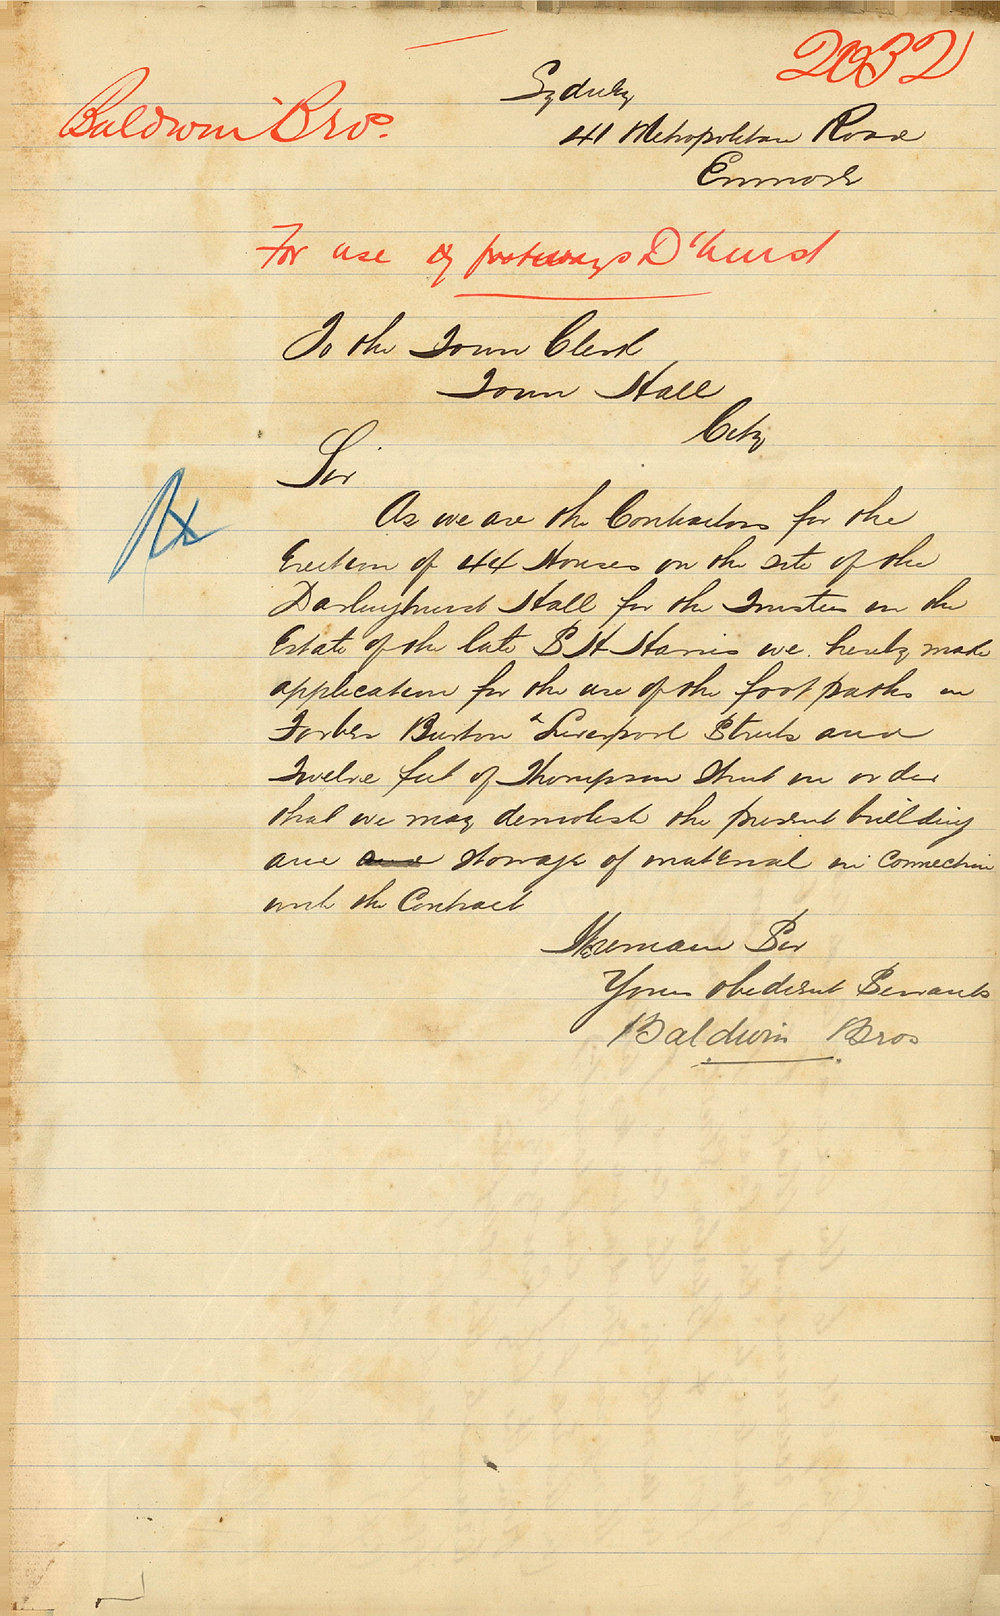 2032
Baldwin Bros.
Sydney
41 Metropolitan Road
Enmore
For use of footways D'hurst
To the Town Clerk
Town Hall
City
Sir
As we are the Contractors for the
Erection of 44 Houses on the site of the
Darlinghurst Hall for the Trustees in the
Estate of the late S H Harris we hereby make
application for the use of the foot paths in
Forbes Burton & Liverpool Streets and
Twelve feet of Thompson Street in order
that we may demolish the present building
and storage of material in connection
with the Contract
We remain Sir
Your obedient Servants
Baldwin Bros